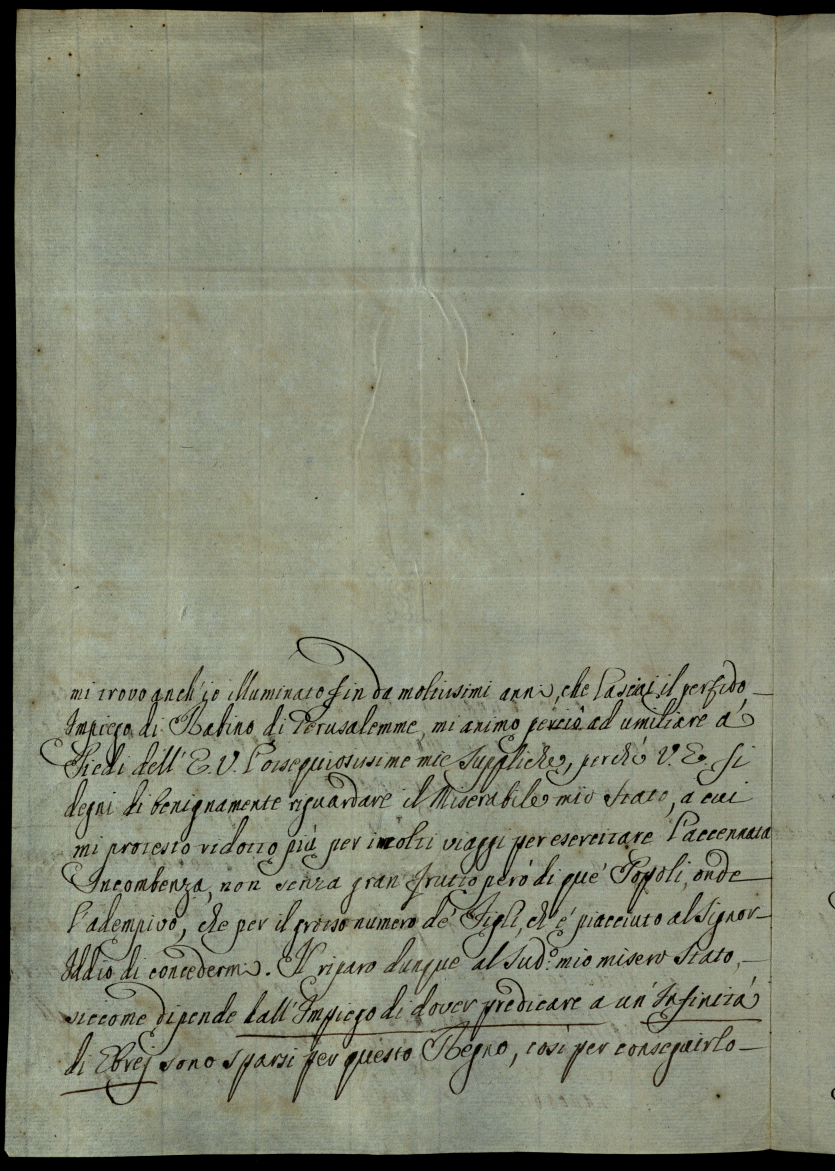 mi trovo anch'io illuminato fin da moltissimi anni, che lasciai il perfido
Impiego di Rabino di Gerusalemme, mi animo perciò ad umiliare a'
Piedi dell' E. V. l'ossequiosissime mie suppliche, perché V. E. si
degni di benignamente riguardare il Miserabile mio Stato, a cui
mi protesto ridotto più per i molti viaggi per esercitare l'accennata
Incombenza, non senza gran frutto però di que' Popoli, onde
l'adempivo, che per il grosso numero de' Figli, ch' è piacciuto al Signor
Iddio di concedermi. Il riparo dunque al sud.º mio misero stato,
siccome dipende dall'Impiego di dover predicare a un' Infinità
di Ebrej sono sparsi per questo Regno, così per conseguirlo